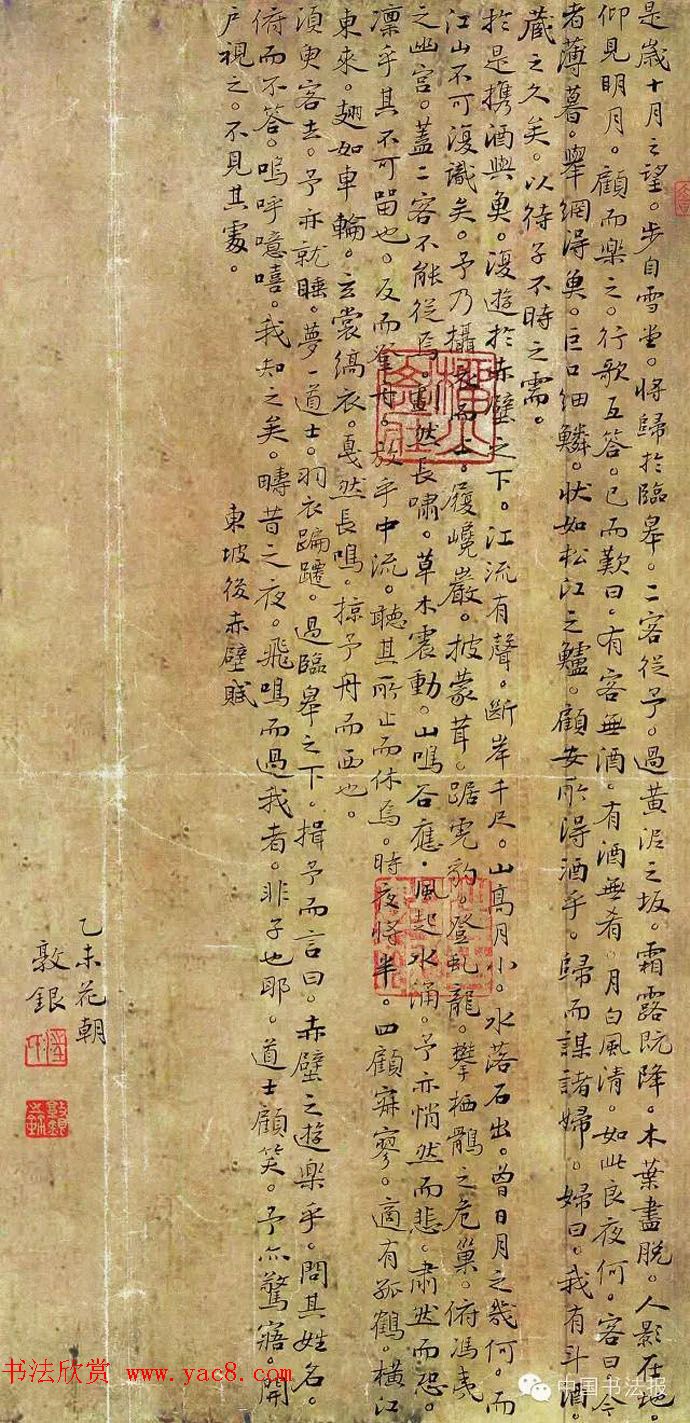 是歲十月之望。步自雪堂。將歸於臨皋。二客從予。過黃泥之坂。霜露既降。木葉盡脫。人影在地
仰見明月。顧而樂之。行歌互答。已而歎曰。有客無酒。有酒無肴。月白風清。如此良夜何。客曰。今
者薄暮。舉網得魚。巨口細鱗。狀如松江之鱸。顧安所得酒乎。歸而謀諸婦。婦曰。我有斗酒。
蔵之久矣。以待子不時之需。
於是携酒與魚。復遊於赤壁之下。江流有聲。斷岸千尺。山高月小。水落石出。曾日月之幾何。而
江山不可復識矣。予乃攝衣而上。履巉巖。披蒙茸。踞虎豹。登虬龍。攀栖鶻之危巢。俯馮夷
之幽宮。蓋二客不能從焉。劃然長嘯。草木震動。山鳴谷應。風起水涌。予亦悄然而悲。肅然而恐。
凛乎其不可留也。反而登舟。放乎中流。聽其所止而休焉。時夜將半。四顧寂寥。適有孤鶴。橫江
東來。翅如車輪。玄裳縞衣。戛然長鳴。掠予舟而西也。
須臾客去。予亦就睡。夢一道士。羽衣蹁躚。過臨皋之下。揖予而言曰。赤壁之遊樂乎。問其姓名。
俯而不答。嗚呼噫嘻。我知之矣。疇昔之夜。飛鳴而過我者。非子也耶。道士顧笑。予亦驚寤。開
户視之。不見其處。
東坡後赤壁賦
乙未花朝
敦銀
书法欣赏 www.yac8.com
中国书法报